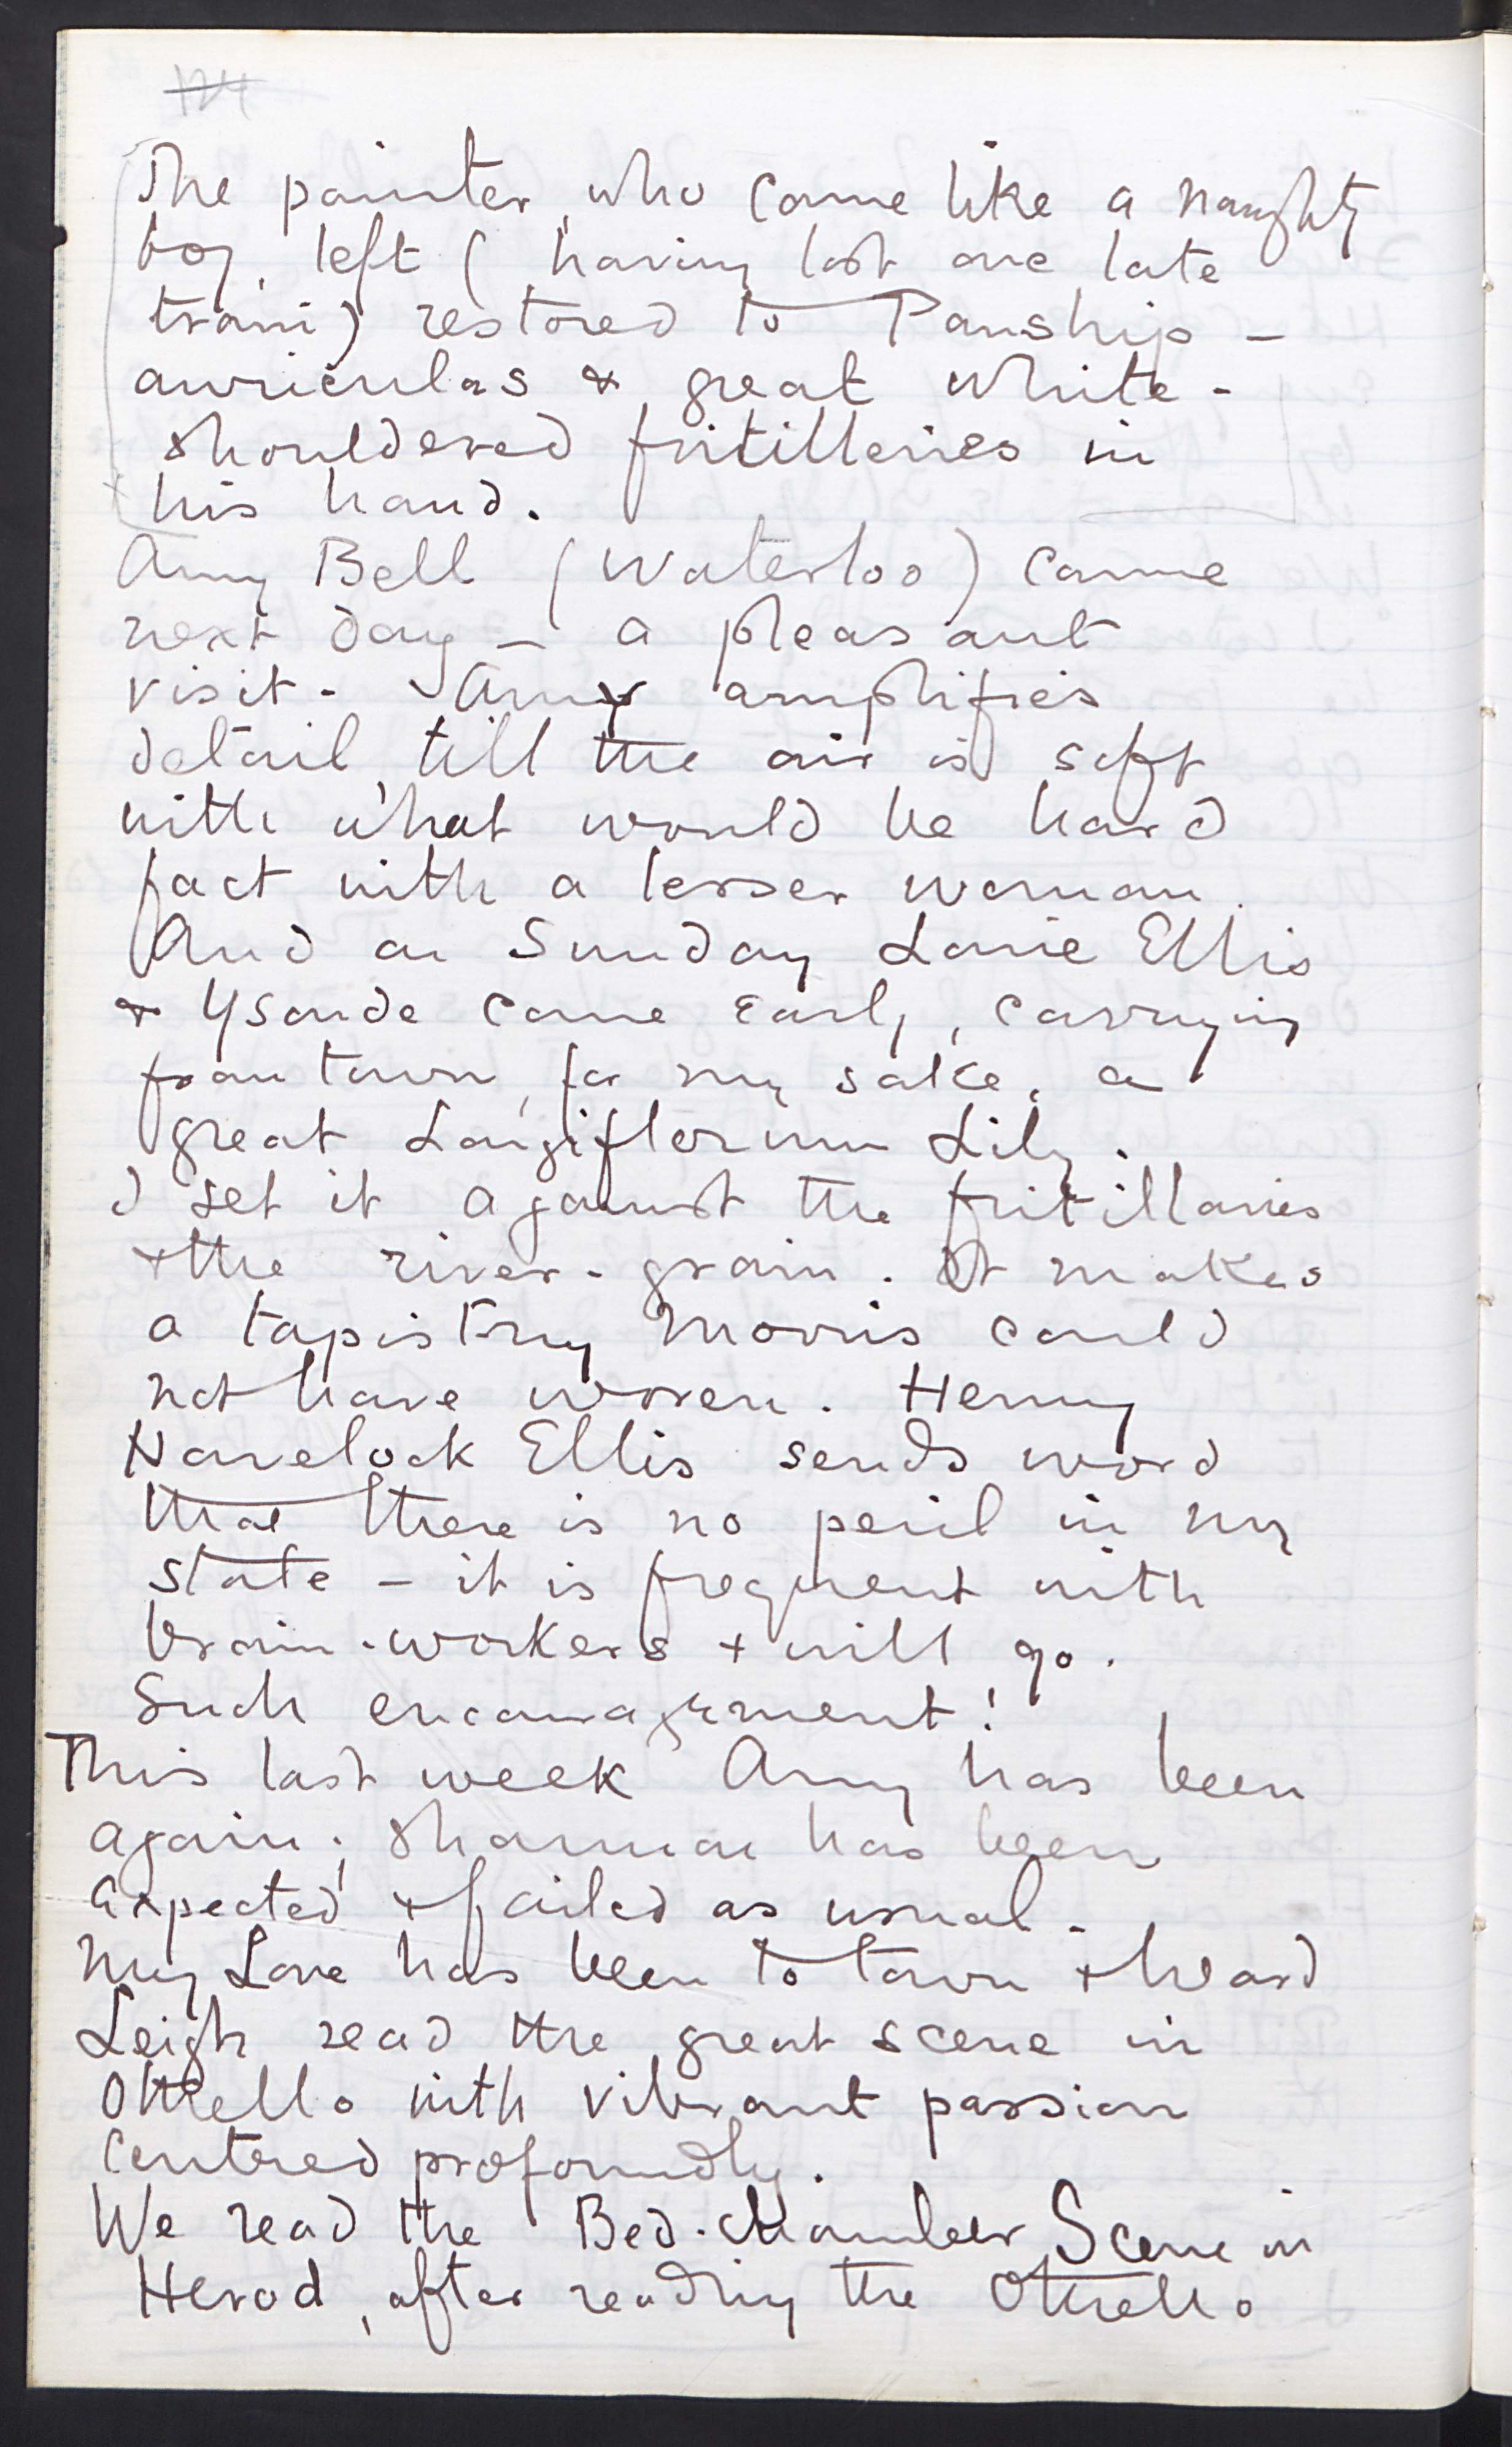 124
The painter, who came like a naughty
boy, left (having lost one late
train) restored to Panship –
auriculas & great white-
shouldered fritilleries in
his hand.
Amy Bell (Waterloo) came
next day – a pleasant
visit. Amy amplifies
detail, till the air is soft
with what would be hard
fact with a lesser woman.
And on Sunday Louie Ellis
& Ysonde came early, carrying
from town, for my sake, a
great Longiflorum Lily.
I set it against the fritillaries
& the river-grain. It makes
a tapistry Morris could
not have woven. Henry
Havelock Ellis sends word
that there is no peril in my
state – it is frequent with
brain-workers & will go.
Such encouragement!
This last week Amy has been
again; Shannon has been
expected & failed as usual.
My Love has been to town & heard
Leigh read the great scene in
Othello with vibrant passion
centered profoundly.
We read the Bed-chamber Scene in
Herod, after reading the Othello